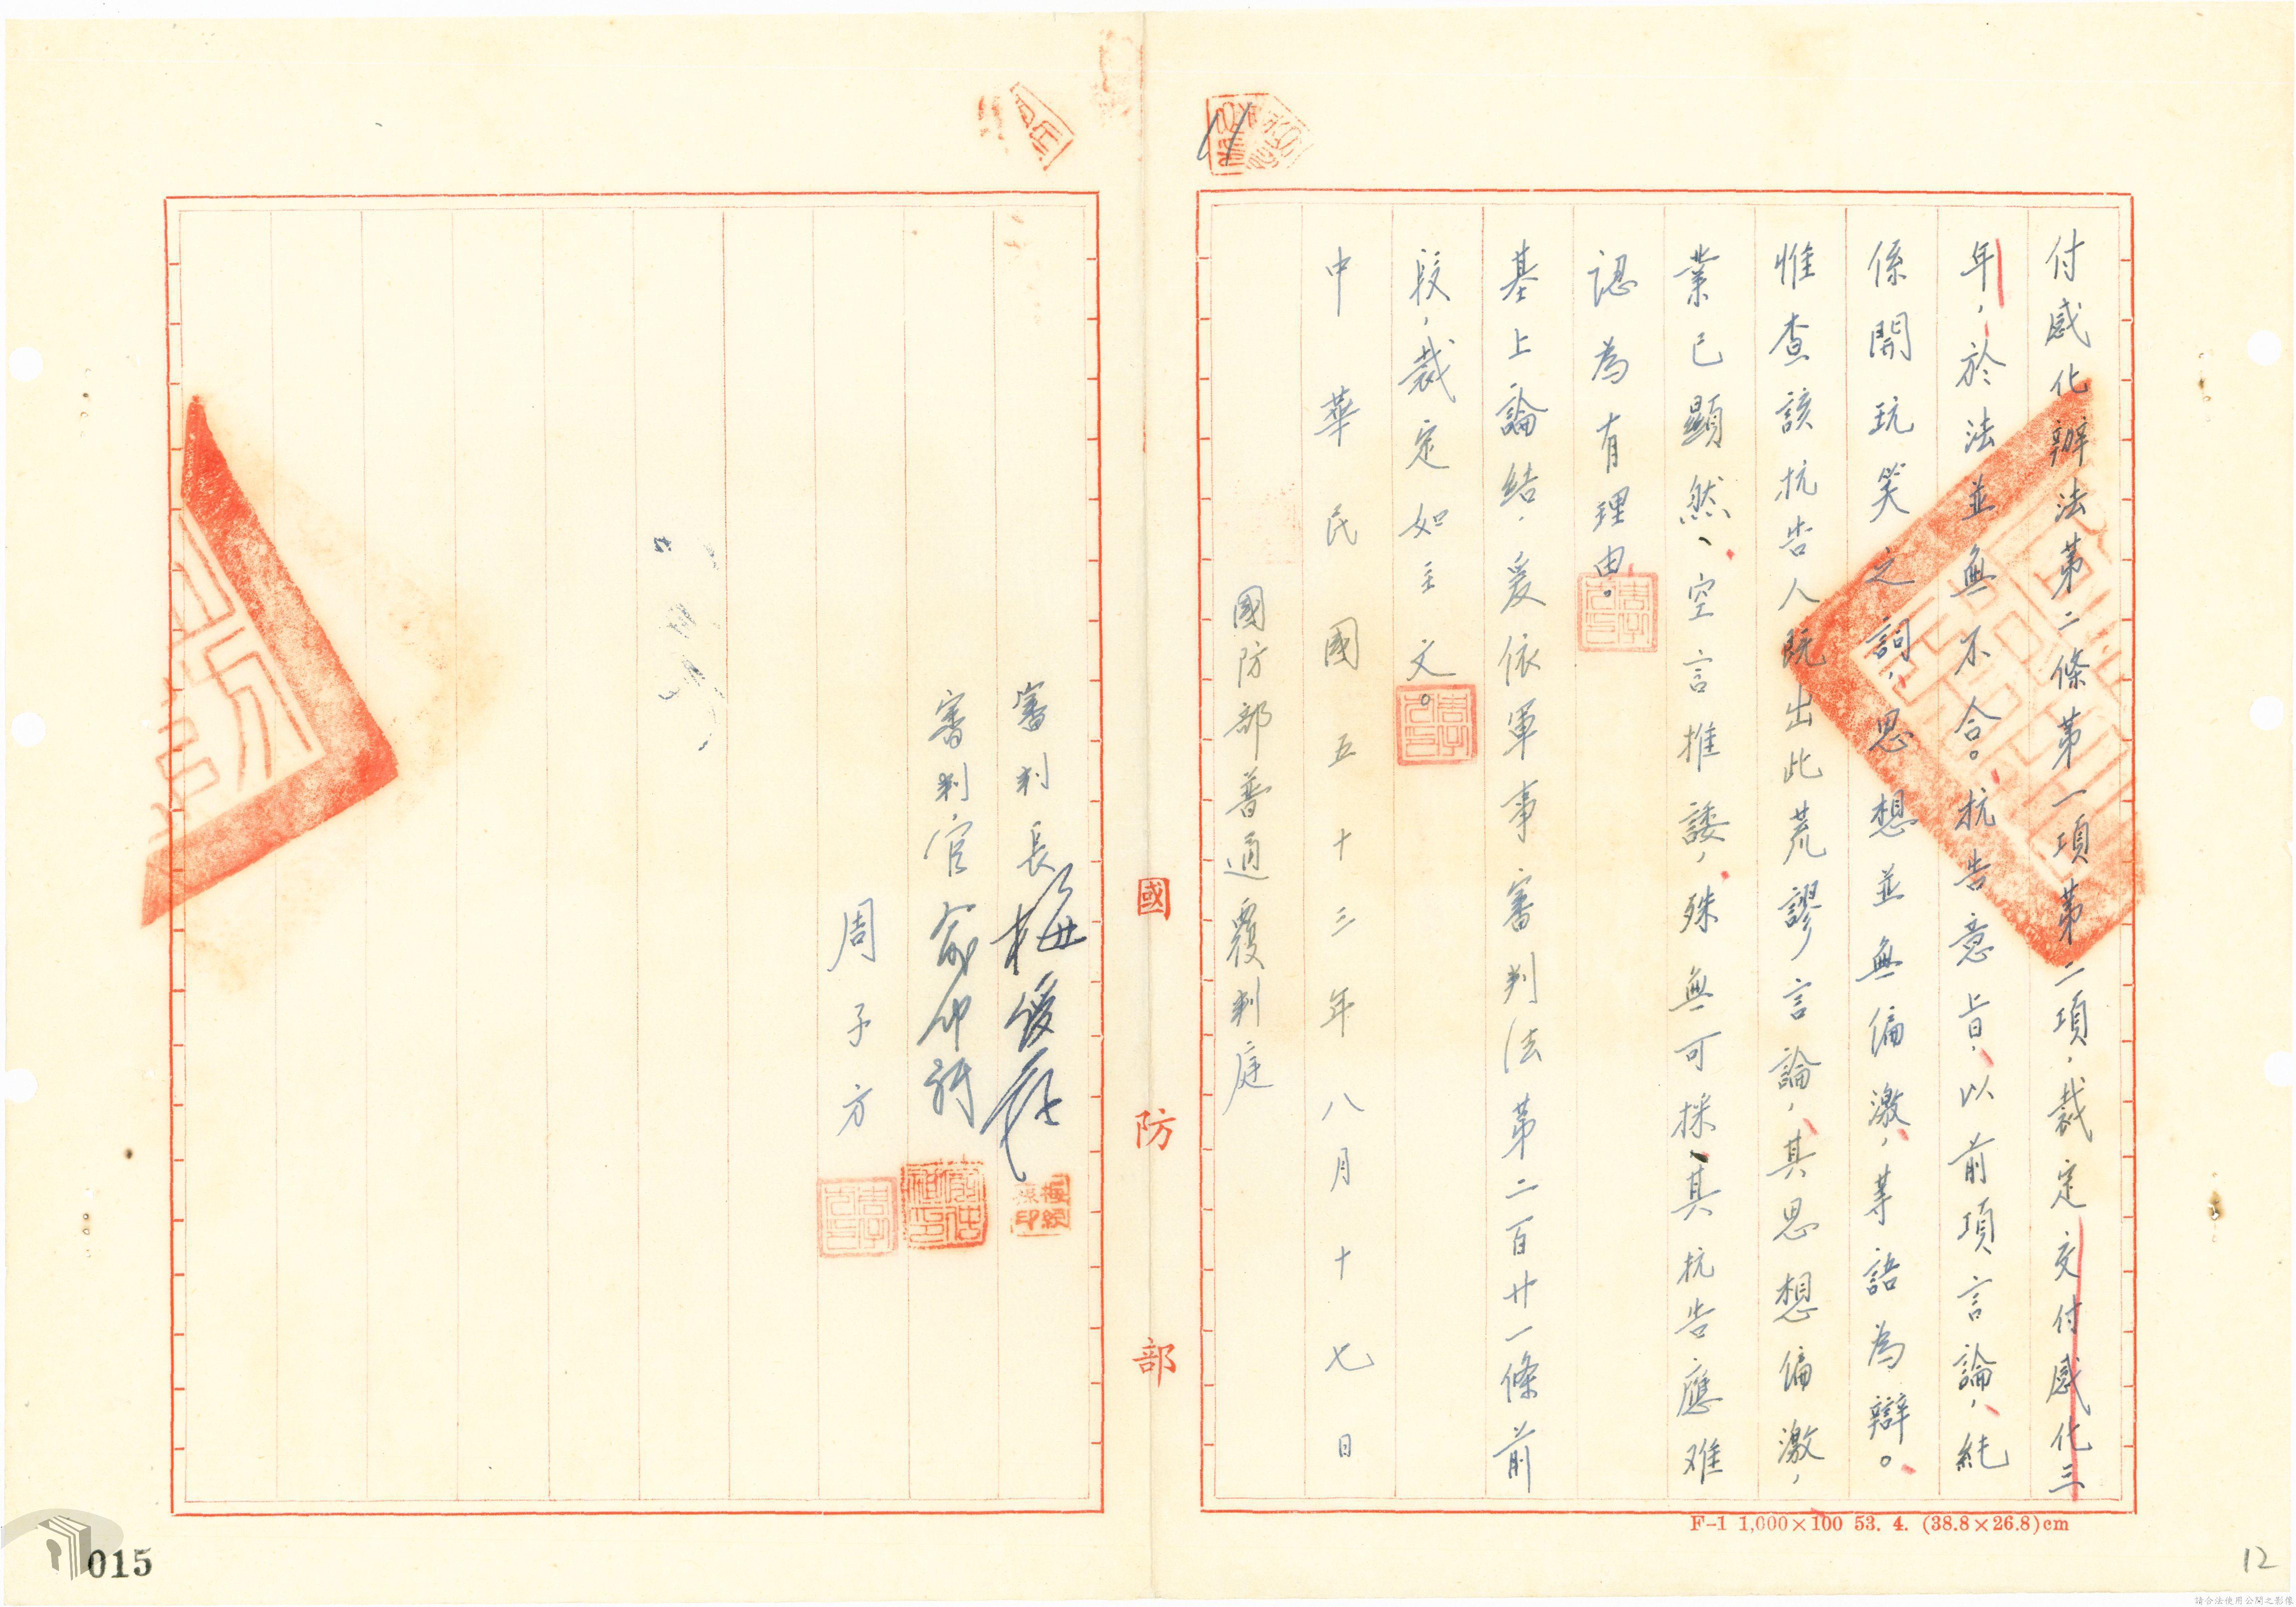 付感化辦法第二條第一項第二項，裁定交付感化三
年，於法並無不合。抗告意旨，以前項言論，純
係開玩笑之詞，思想並無偏激，等語為辯。
惟查該抗告人既出此荒謬言論，其思想偏激，
業已顯然、空言推諉，殊無可採、其抗告應难
認為有理由。
基上論結，爰依軍事審判法第二百廿一條前
段，裁定如主文。
中華民國五十三年八月十七日
國防部普通覆判庭
國防部
審判長梅綬蓀
審判官
周子方
F-1 1,000×100 53. 4. (38.8×26.8)cm
015
12
請合法使用公開之影像